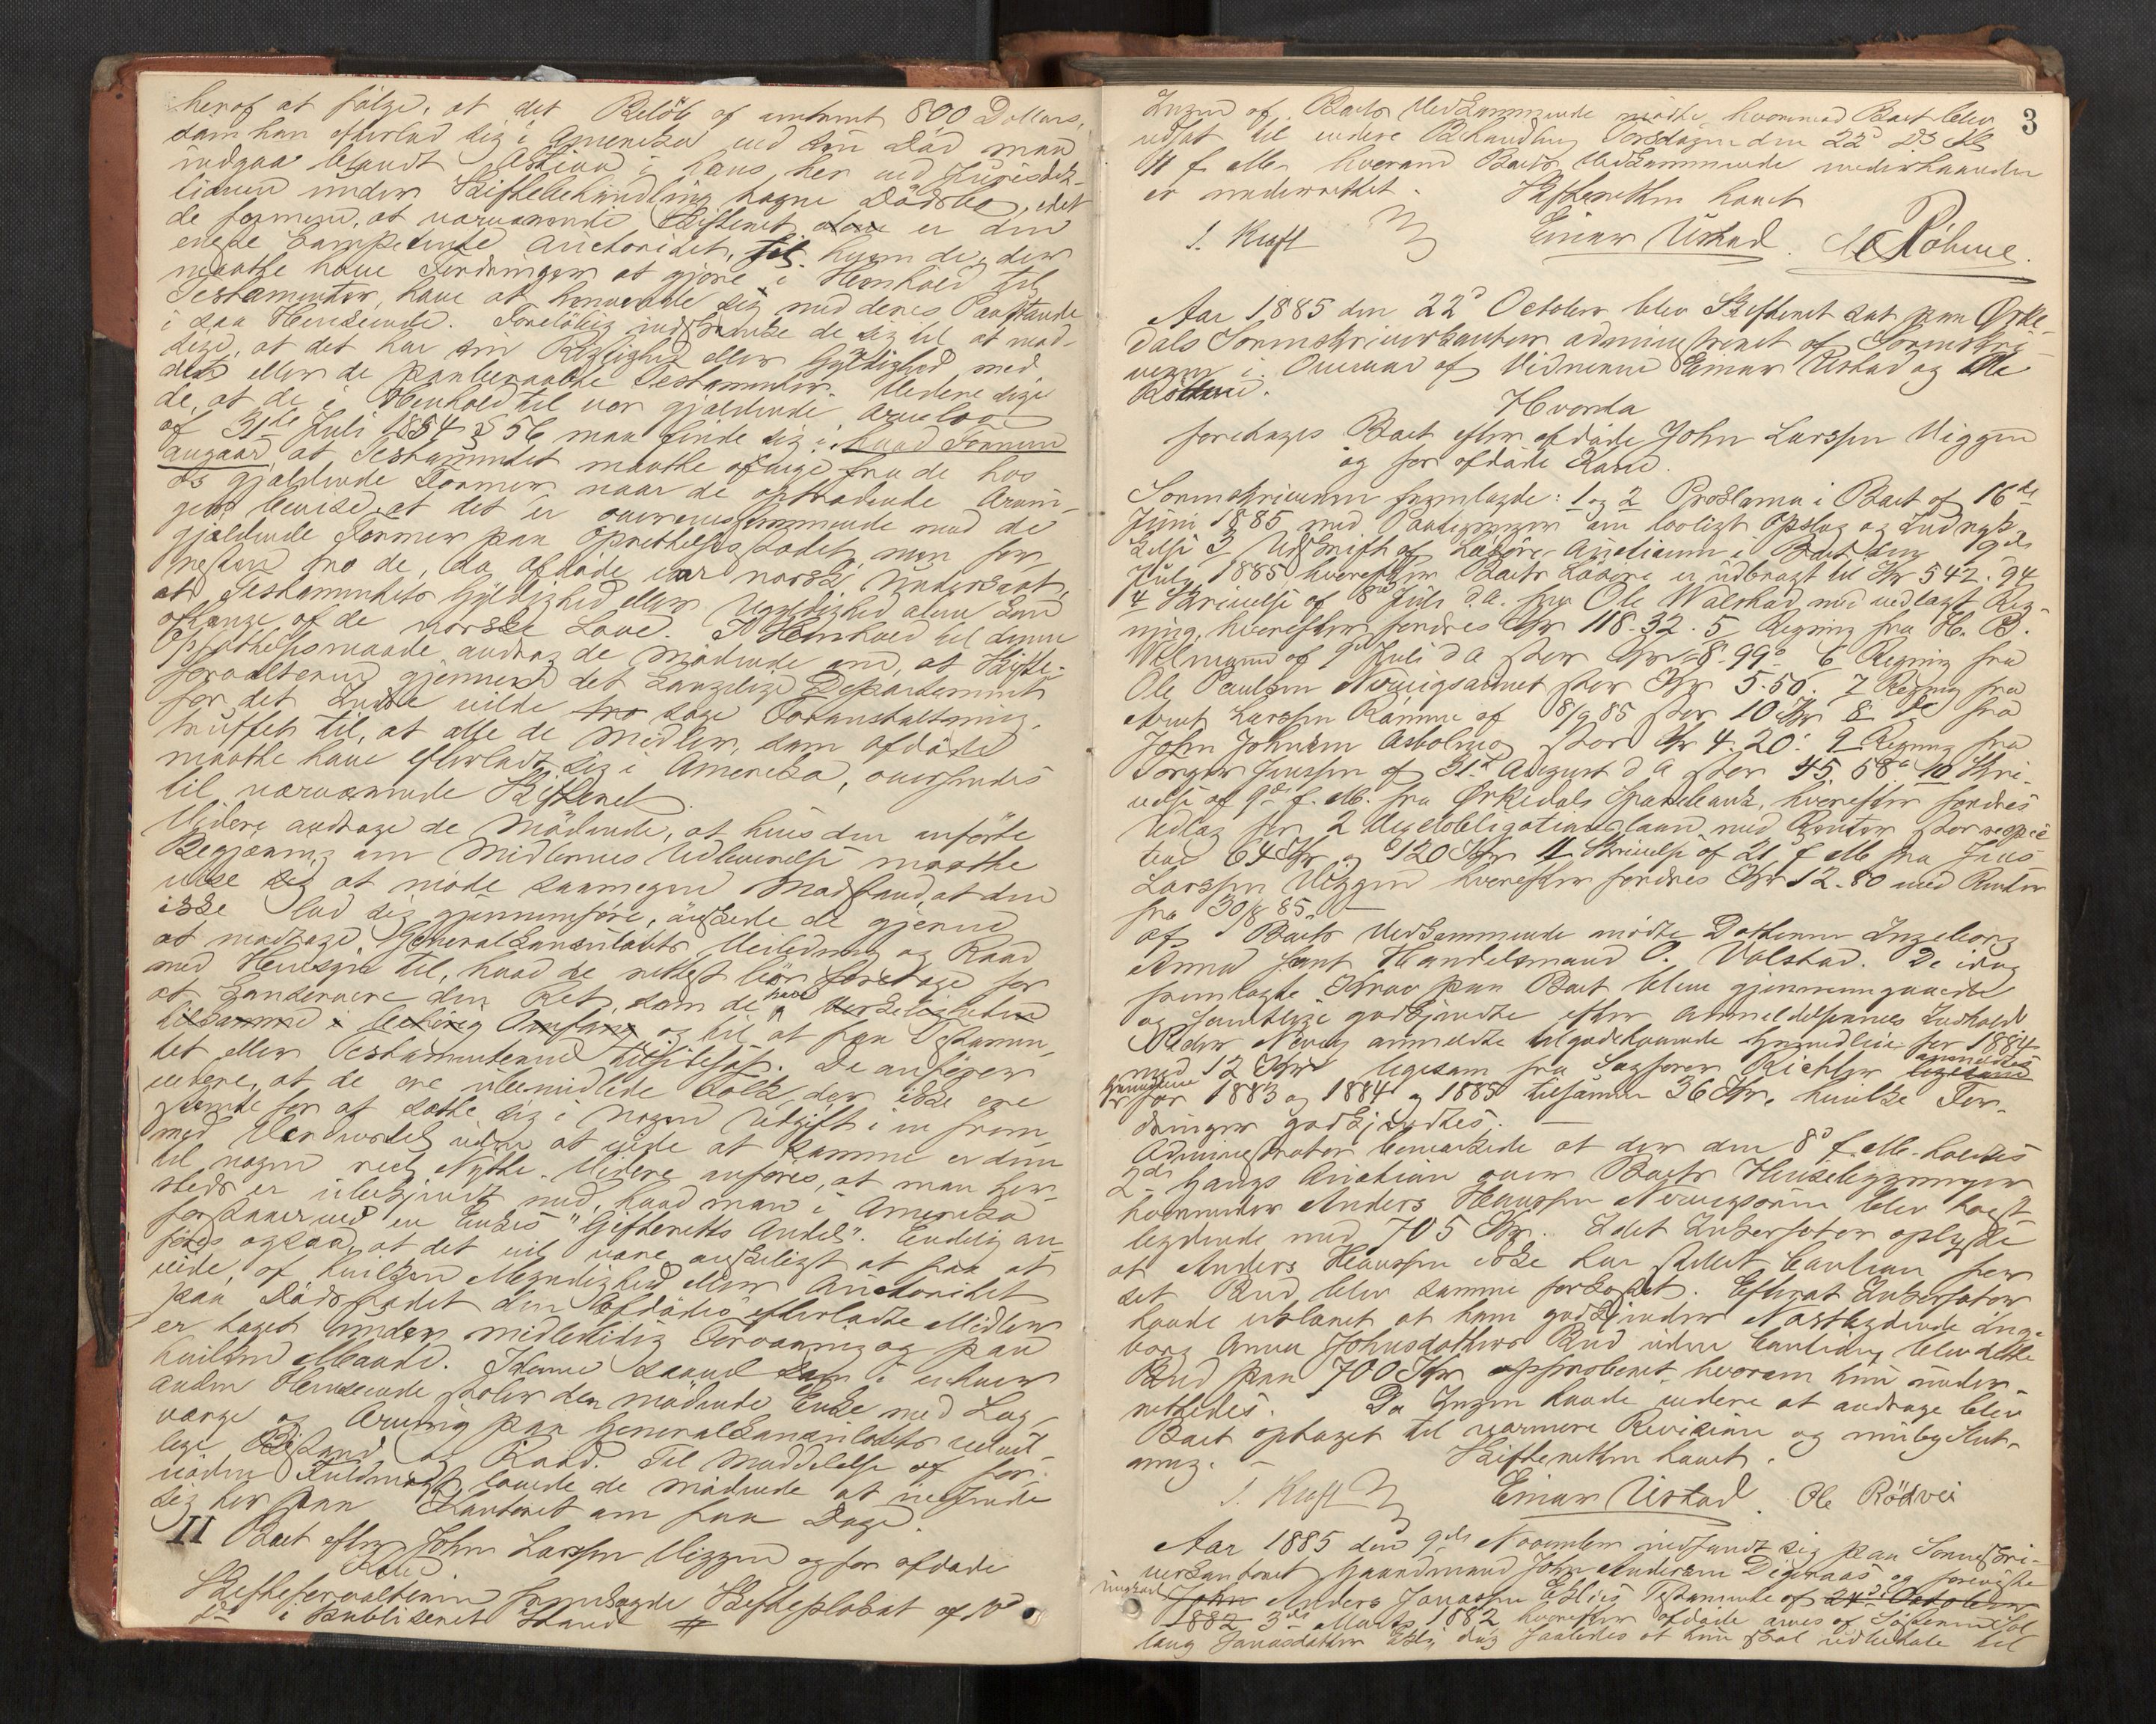 herof at følge, at det Beløb af omtrent 800 Dollars,
som han efterlod sig i Amerika ved sin Død maa
indgaa blandt Aktiva i hans, her ved Jurisdik-
tionen under Skiftebehandling tagne Dødsbo, idet
de formene, at nærværende Skifteret er den
eneste competente Auctoritet, til hvem de, der
maatte have Fordringer at gjøre i Henhold til
Testamenter, have at henvende sig med deres Paastande
i saa Henseende. Foreløbig indskrænke de sig til at mod-
sige, at det har sin Rigtighed eller Gyldighed med
det eller de paaberaabte Testamenter. Videre sige
de, at de i Henhold til vor gjældende Arvelov
af 31te Juli 1854 § 56 maa finde sig i, hvad Formen
angaar, at Testamentet maatte afvige fra de hos
os gjældende Former naar de optrædende Arvin-
ger bevise, at det er overensstemmende med de
gjældende Former paa Oprettelsesstedet, men for-
resten tro de, da afdøde var norsk Undersaat,
at Testamentets Gyldighed eller Ugyldighed alene kan
afhænge af de norske Love. I Henhold til denne
Opfattelsesmaade androg de mødende om, at Skifte-
forvalteren gjennem det kongelige Departement
for det Indre vilde tage Foranstaltning
truffet til, at alle de Midler, som afdøde
maatte have efterladt sig i Amerika, oversendes
til nærværende Skifteret.
Videre androge de mødende, at hvis den anførte
Begjæring om Midlernes Udleverelse maatte
vise sig at møde saamegen Modstand, at den
ikke lod sig gjennemføre, ønskede de gjerne
at modtage Generalkonsulatets Veiledning og Raad
med Hensyn til, hvad de rettest bør foretage for
at konservere den Ret, som de have
og til at faa Testamen-
tet eller Testamenterne tilsidesat. De anfører
videre, at de ere ubemidlede Folk, der ikke ere
for at sætte sig i nogen Udgift i en frem-
med Verdensdel uden at vide at komme er den
til nogen reel Nytte. Videre anføres, at man her-
steds er ubekjendt med, hvad man i Amerika
forstaar ved en Enkes "Gifteretts Andel". Endelig an-
føres ogsaa, at det vil være ønskeligt at faa at
vide, af hvilken Myndighed eller Auctoritet
paa Dødsstedet den Afdødes efterladte Midler
er taget under midlertidig Forvaring og paa
hvilken Maade. I denne saavel som i enhver
anden Henseende stoler den mødende Enke med Lag-
værge og Arving paa Generalkonsulatets velvil-
lige Bistand og Raad. Til Meddelelse af for-
nøden Fuldmagt lovede de mødende at indfinde
sig her paa Kontoret om faa Dage.
II Boet efter John Larssen Viggen og før afdøde
Kone.
Skifteforvalteren fremlagde Skifteplakat af 10d
i publiceret Stand #
3
Ingen af Boets Vedkommende mødte, hvornæst Boet blev
udsat til videre Behandling Torsdagen den 22d ds Kl
11 f. Md. hverom Boets Vedkommende underhaanden
er underrettet. Skifteretten hævet
J. Kraft Einar Ustad. Ole Röhme.
Aar 1885 den 22d October blev Skifteret sat paa Ørke-
dals Sorenskriverkontor administreret af Sorenskri-
veren i Overvær af Vidnerne Einar Ustad og Ole
Hvorda
foretages Boet efter afdøde John Larssen Viggen
og før afdøde Kone.
Sorenskriveren fremlagde: 1 og 2 Proklama i Boet af 16de
Juni 1885 med Paategninger om lovligt Opslag og Indryk-
kelse 3 Udskrift af Løsøre-Auctionen i Boet den 9de
July 1885 hvorefter Boets Løsøre er udbragt til Kr 542.94
4 Skrivelse af 8de Juli d. A. fra Ole Walstad med vedlagt Reg-
ning, hvorefter fordres Kr 118.32. 5 Regning fra H. B.
af 9de Juli d A stor Kr 8.99. 6 Regning fra
Ole Paulsen stor Kr 5.50. 7 Regning fra
Arnt Larssen Rømme af 8/9 85 stor 10 Kr 8 do fra
John Johnsen Asbøl stor Kr 4.20. 9 Regning fra
Torger Jenssen af 31te August d A stor 45.58. 10 Skri-
velse af 9de f. M. fra Ørkedals Sparebank, hvorefter fordres
Udlæg for 2 Vexelobligationslaan med Renter stor respec-
tive 64 Kr og 120 Kr 11 Skrivelse af 21 f M fra Jens
Larssen Viggen hvorefter fordres Kr 12.80 med Renter
fra 30/8 85.
Af Boets Vedkommende mødte Datteren Ingeborg
Anna samt Handelsmand O. Valstad. De idag
fremlagte Krav paa Boet bleve gjennemgaaede
og samtlige godkjendte efter Anmeldelsernes Indhold
Peder anmeldte tilgodehavende Grundleie for 1884
med 12 Kr ligesom fra Sagfører Richter anmeldtes
Grundleie for 1883 og 1884 og 1885 tilsammen 36 Kr, hvilke For-
dringer godkjendtes.
Administrator bemærkede at der den 8d f. M. holdtes
2den Gangs Auction over Boets Huusebygninger
hvorunder Anders Hanssen blev høist-
bydende med 705 Kr. Idet Inkassator oplyste
at Anders Hanssen ikke har stillet Caution for
sit Bud, blev samme forkastet. Efterat Inkassator
havde erklæret at han godkjender Næstbydende Inge-
borg Anna Johnsdatters Bud uden Caution, blev dette
Bud paa 700 Kr approberet, hvorom hun under-
rettedes. Da Ingen havde videre at andrage blev
Boet optaget til nærmere Revision og
Skifteretten hævet.
J. Kraft Einar Ustad. Ole Rödvei
Aar 1885 den 9de November indfandt sig paa Sorenskri-
verkontoret Gaardmand John Andersen Digeraas og foreviste
ungkarl John Anders Jonassen Eklies Testamente af 24d October
1882 3die Marts 1882 hvorefter afdøde arves af Søsteren Sol-
laug Jonasdatter dog saaledes at hun skal udbetale til